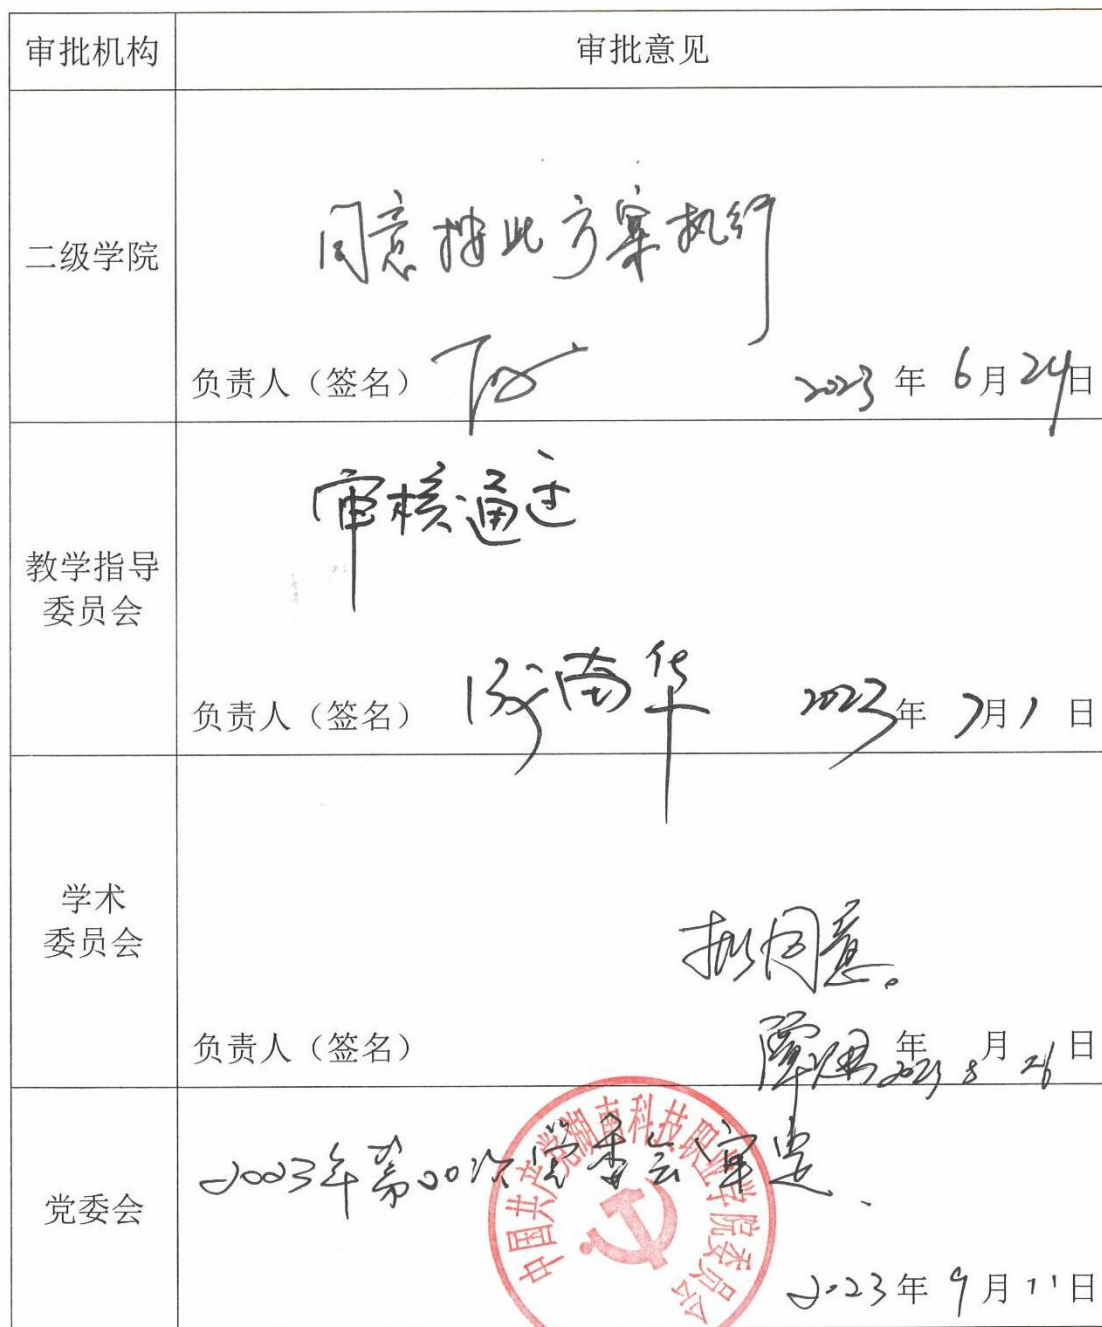 审批机构 审批意见
二级学院
同意按此方案执行
负责人（签名） 2023 年 6 月 24 日
教学指导
委员会
审核通过
负责人（签名） 南华 2023 年 7 月 1 日
学术
委员会
拟同意。
负责人（签名） 年 月 日
2023 8 26
党委会
2023年第20次党委会审定、
中国共产党湖南科技职业学院委员会
2023 年 9 月 11 日